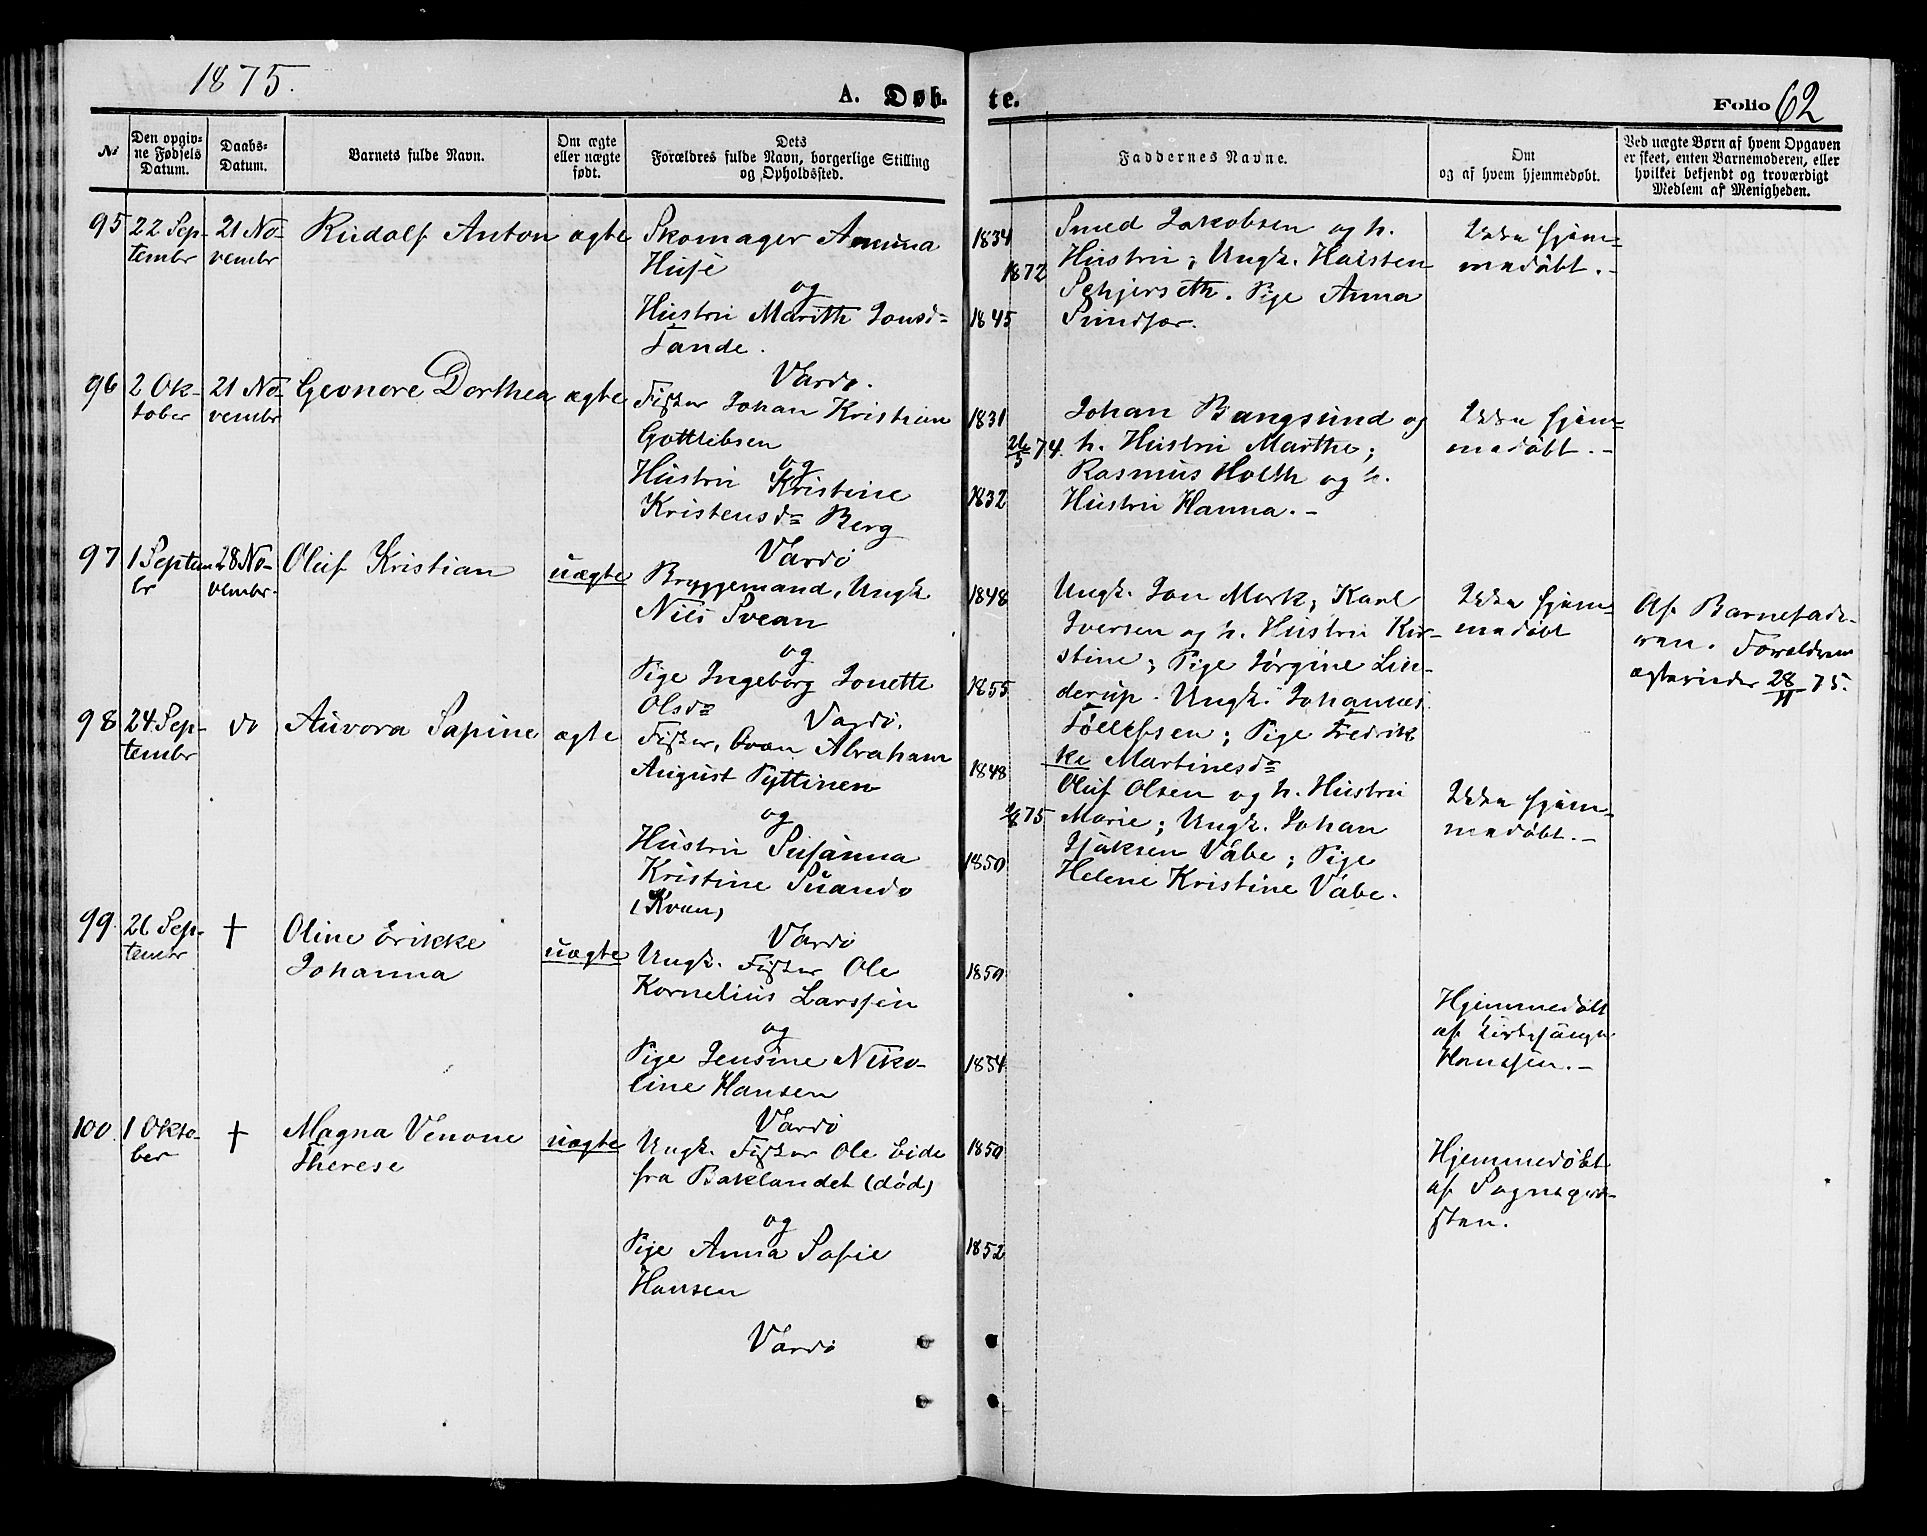 1875.
A. Døb-
te.
Folio 62
No
Den opgiv-
ne Fødsels
Datum.
Daabs-
Datum.
Barnets fulde Navn.
Om ægte
eller uægte
født.
Dets
Forældres fulde Navn, borgerlige Stilling
og Opholdssted.
Faddernes Navne.
Om
og af hvem hjemmedøbt.
Ved uægte Børn af hvem Opgaven
er skeet, enten Barnemoderen, eller
hvilket bekjendt og troværdigt
Medlem af Menigheden.
95
22 Sep-
tembr
21 No-
vembr
Rudolf Anton
ægte
Skomager Amina
Huse
og
Hustru Marith Jonsd=
Tande.
Vardø.
1834
1872
1845
Smed Jakobsen og h.
Hustru; Ungk. Halsten
Schjerseth. Pige Anna
Sundfær.
Ikke hjem=
medøbt.-
96
2 Ok-
tober
21 No-
vembr
Geonore Dorthea
ægte
Fisker Johan Kristian
Gottlibsen
og
Hustru Kristine
Kristensd= Berg
Vardø
1831
26/5 74.
1832
Johan Bangsund og
h. Hustru Marthe;
Rasmus Holth og h.
Hustru Hanna.-
Ikke hjem=
medøbt.-
97
1 Septem
br
28 No-
vembr.
Oluf Kristian
uægte
Bryggemand, Ungk.
Nils Svean
og
Pige Ingeborg Jonette
Olsd=
Vardø.
1848
1855
Ungk. Jon Mork; Karl
Iversen og h. Hustru Kir-
stine; Pige Jørgine Lin-
derup. Ungk. Johannes
Tøllefsen; Pige Fredrik
ke Martinesd=
Ikke hjem=
medøbt
Af Barnefade-
ren. Forældrene
ægtevieder 28/11 75.
98
24 Sep-
tembr
do
Auvora Sapine
ægte
Fisker, Qvæn Abraham
August Pyttinen
og
Hustru Susanna
Kristine Suando
(Kvæn)
Vardø
1848
1/8 75
1850
Oluf Olsen og h. Hustru
Marie; Ungk. Johan
Isaksen Vabe; Pige
Helene Kristine Vabe.
Ikke hjem=
medøbt.-
99.
26 Sep-
tembr
†
Oline Erikke
Johanna
uægte
Ungk. Fisker Ole
Kornelius Larssen
og
Pige Jensine Niko-
line Hansen
Vardø
1850
1854
Hjemmedøbt
af Kirkesanger
Hanssen.-
100
1 Okto-
ber
†
Magna Venone
Therese
uægte
Ungk. Fisker Ole Eide
fra Baklandet (død)
og
Pige Anna Sofie
Hansen
Vardø
1850
1852
Hjemmedøbt
af Sognepræ-
sten.